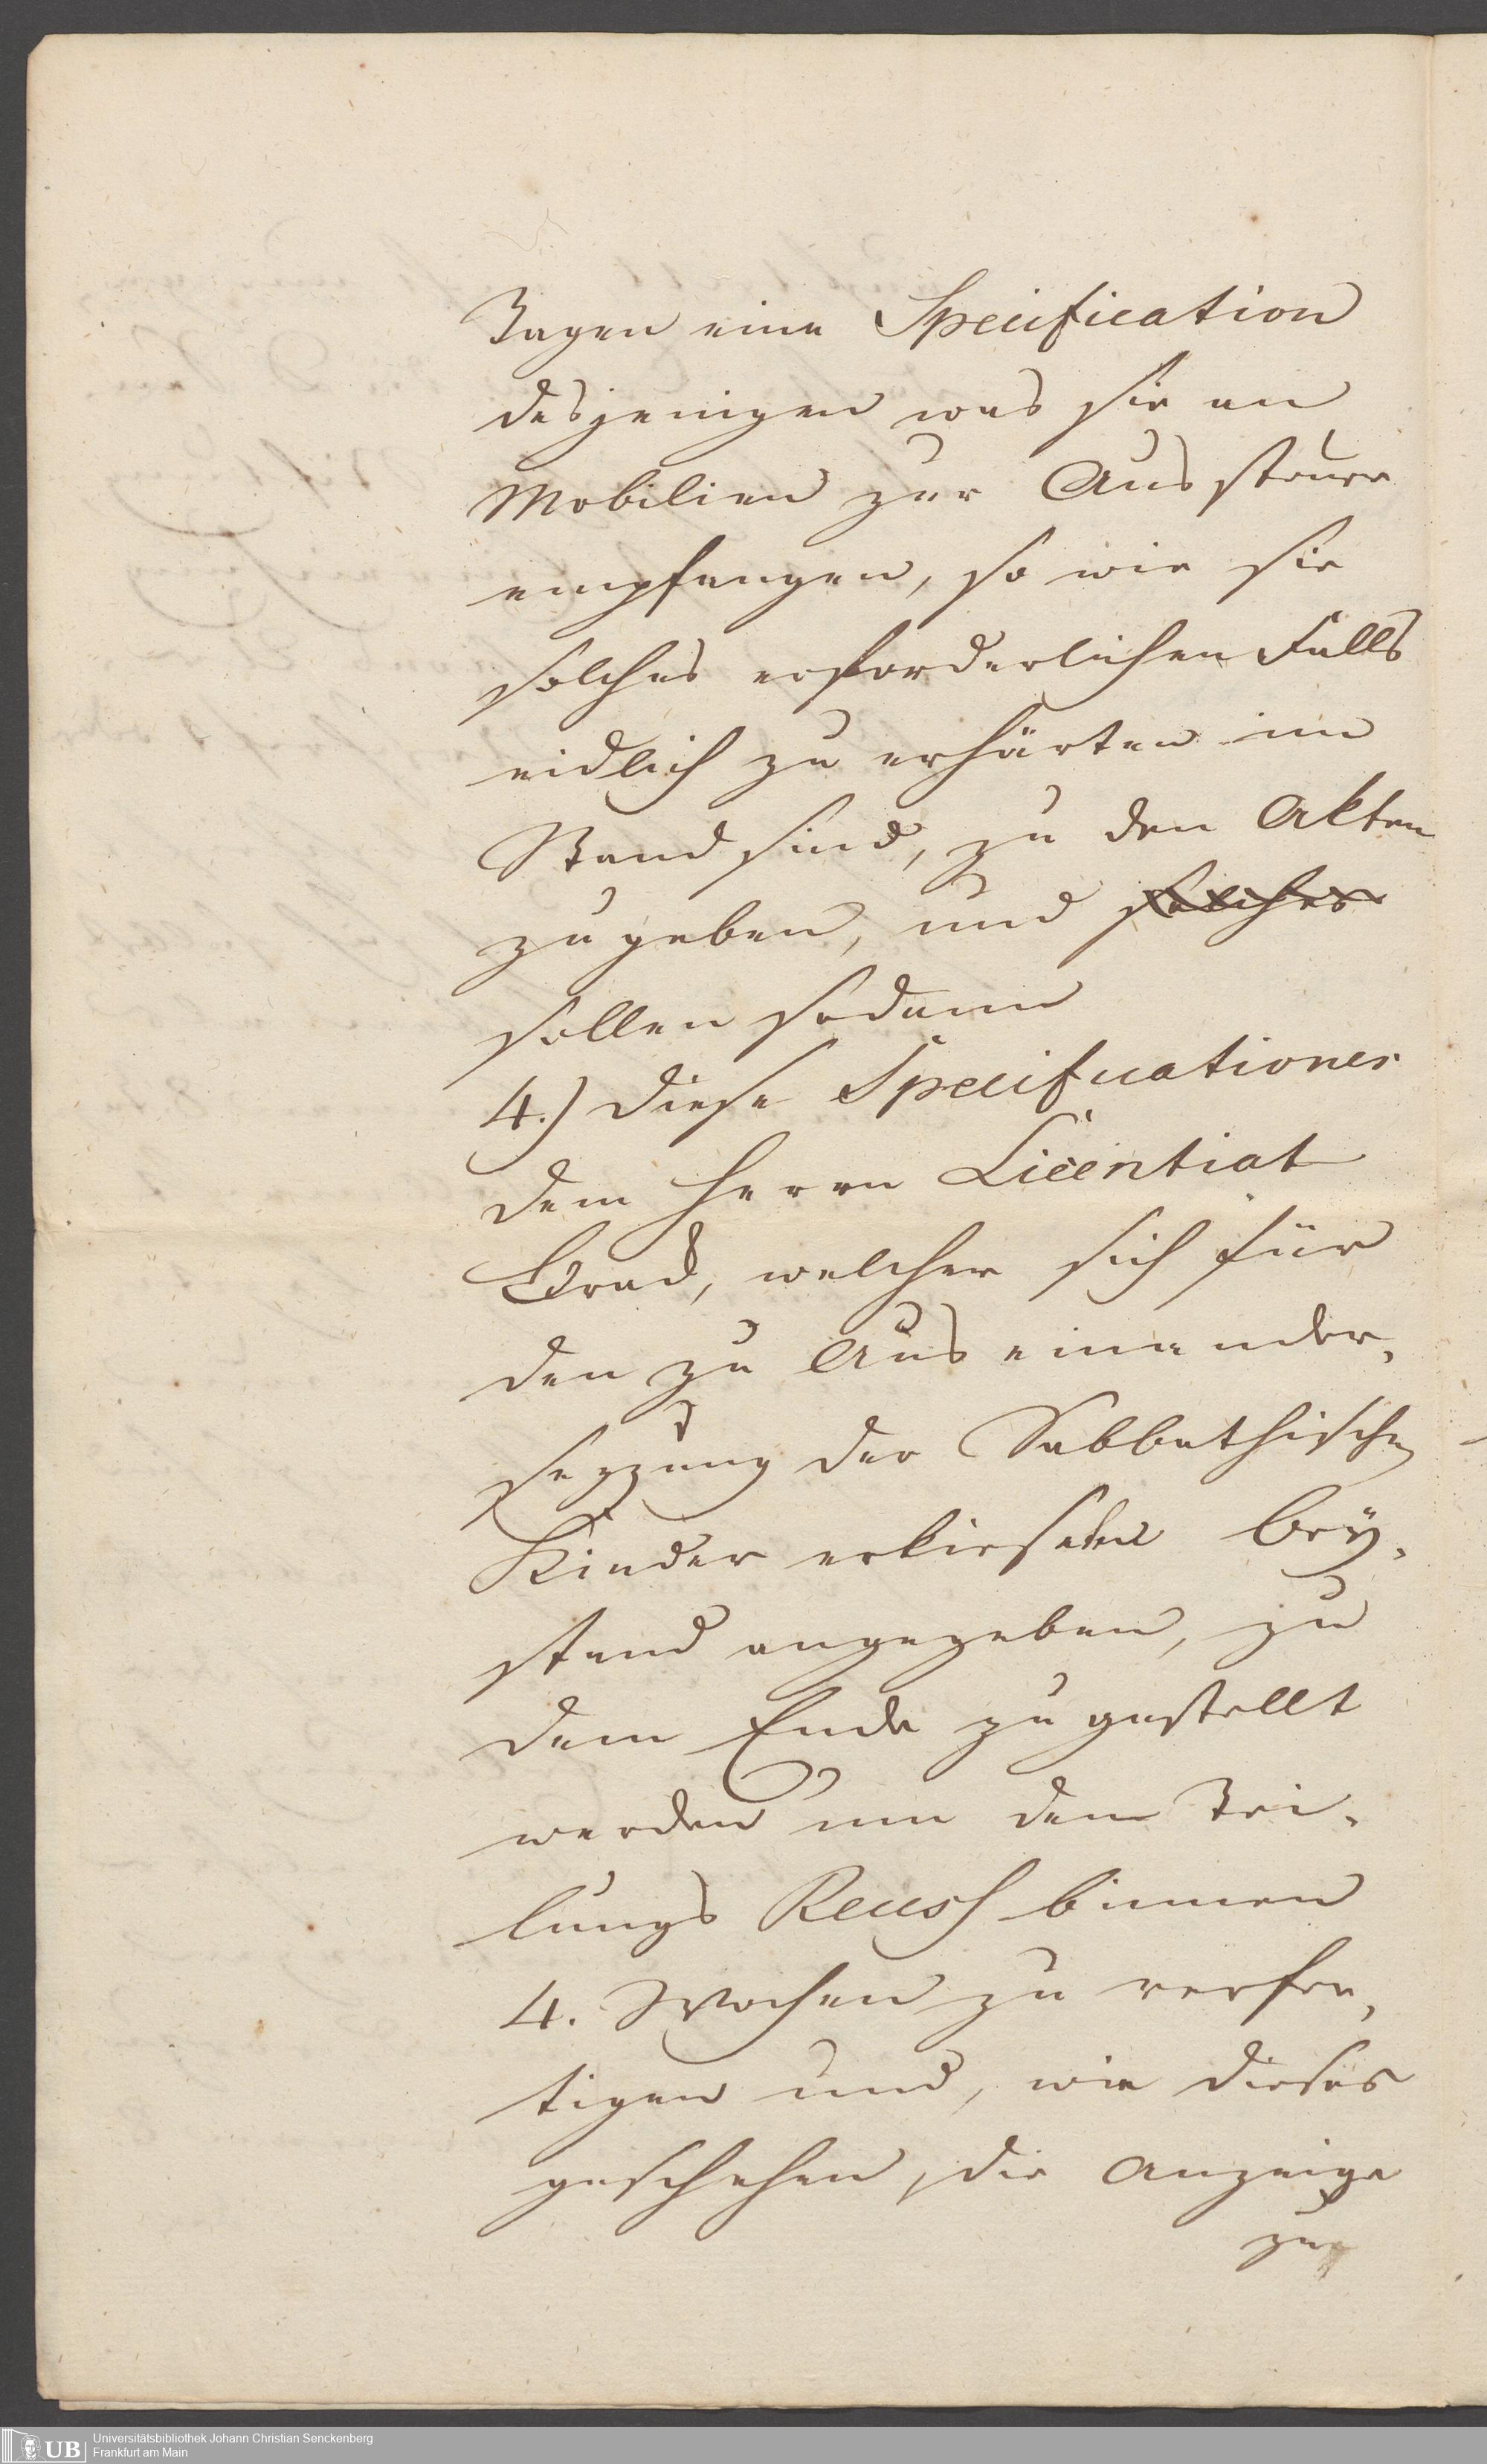 Tagen eine Specification
desjenigen was sie an
Mobilien zur Aussteuer
empfangen, so wie sie
solches erforderlichen Falls
eidlich zu erhärten im
Stand sind, zu den Akten
zu geben, und solches
sollen sodann
4.) diese Specificationes
dem Herrn Licentiat
Grad, welcher sich für
den zu Auseinander-
sezzung der Sabbathischen
Kinder erkiesten Bey-
stand angegeben, zu
dem Ende zugestellt
werden um den Tei-
lungs Recess binnen
4. Wochen zu verfer-
tigen und, wie dieses
geschehen, die Anzeige
zu
Universitätsbibliothek Johann Christian Senckenberg
Frankfurt am Main
UB